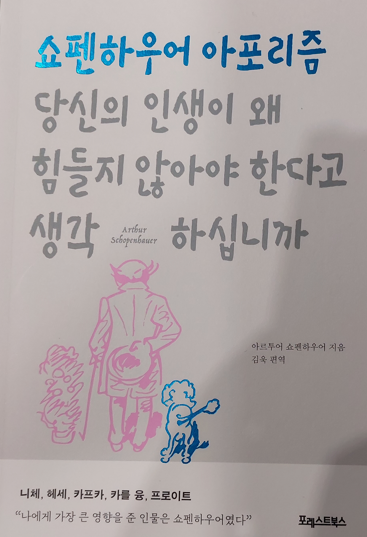 쇼펜하우어 아포리즘
당신의 인생이 왜
힘들지 않아야 한다고
생각 하십니까
Arthur
Schopenhauer
아르투어 쇼펜하우어 지음
김욱 편역
니체, 헤세, 카프카, 카를 융, 프로이트
“나에게 가장 큰 영향을 준 인물은 쇼펜하우어였다”
포레스트북스